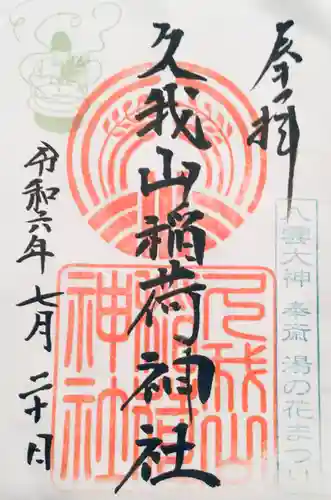 奉拝
久我山稲荷神社
令和六年 七月 二十日
久我山稲荷神社
八雲大神 奉斎 湯の花まつり